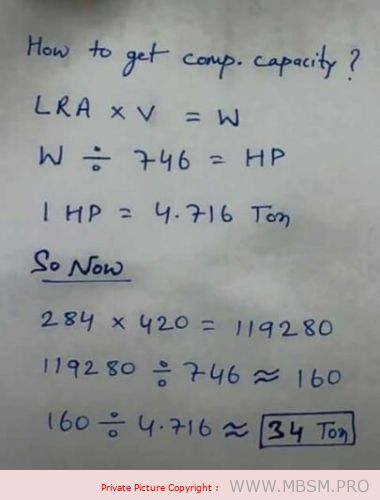 How to get comp. capacity?
LRA × V = W
W ÷ 746 = HP
1 HP = 4.716 Ton
So Now
284 × 420 = 119280
119280 ÷ 746 ≈ 160
160 ÷ 4.716 ≈ 34 Ton
Private Picture Copyright : WWW.MBSM.PRO